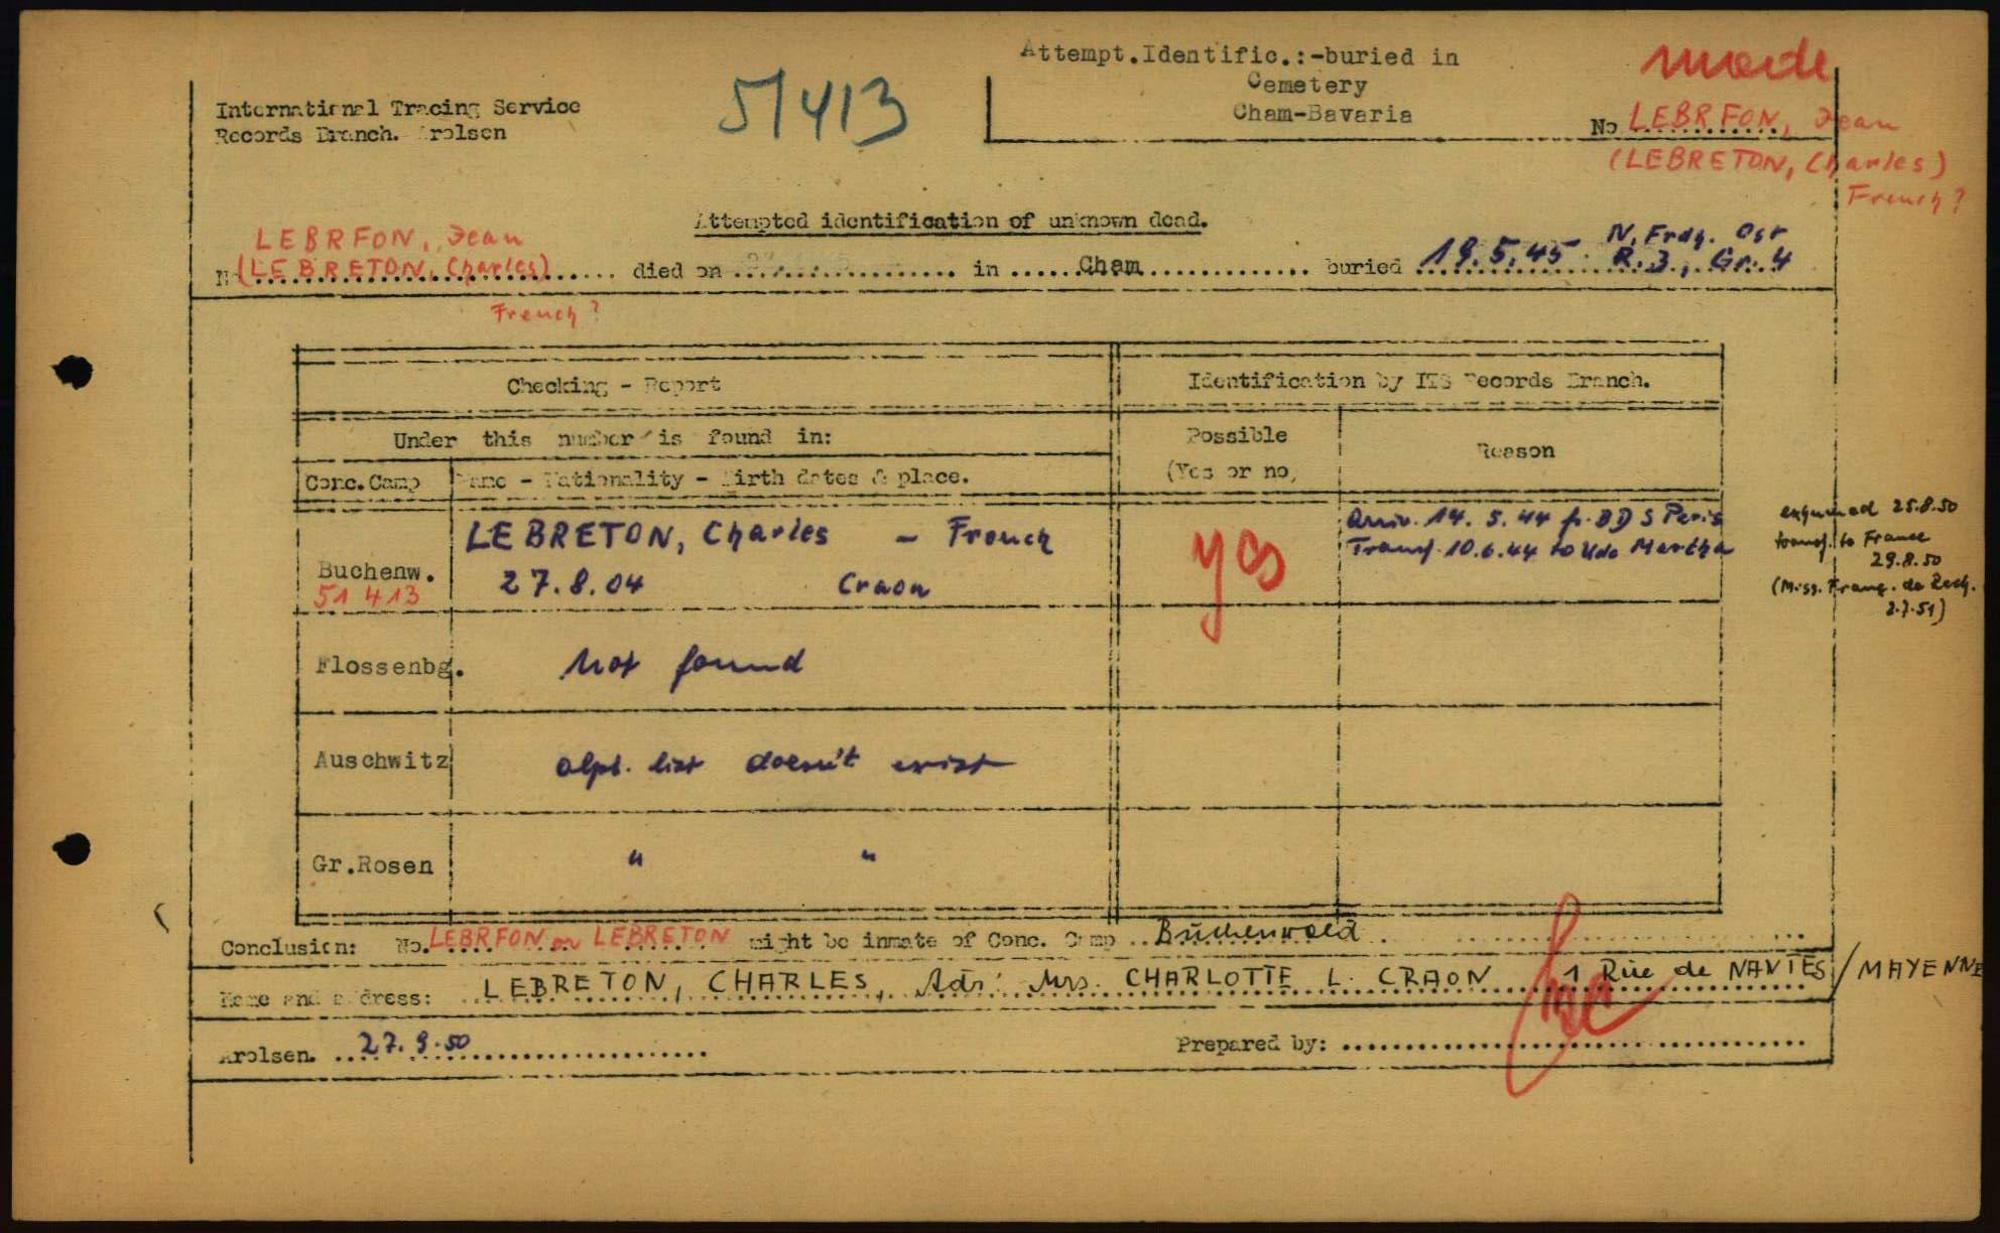 Attempt.Identific.:-buried in
Cemetery
Cham-Bavaria
made
International Tracing Service
Records Branch. Arolsen
51413
No LEBRFON, Jean
(LEBRETON, Charles)
French?
Attempted identification of unknown dead.
LEBRFON, Jean
No (LEBRETON, Charles) died on in Cham buried 19.5.45 N. Frdg. Ost
R.3, Gr. 4
French?
Checking - Report
Identification by ITS Records Branch.
Under this number is found in:
Possible
(Yes or no)
Reason
Conc.Camp
Name - Nationality - Birth dates & place.
Buchenw.
51 413
LEBRETON, Charles - French
27.8.04 Craon
yes
Arriv. 14. 5. 44 fr. BDS Paris
Transf. 10.6.44 to Kdo Martha
exhumed 25.8.50
transf. to France
29.8.50
(Miss. Franç. de Rech.
2.7.51)
Flossenbg.
not found
Auschwitz
alph. list doesn't exist
Gr.Rosen
" "
Conclusion: No. LEBRFON or LEBRETON might be inmate of Conc. Camp Buchenwald
Name and address: LEBRETON, CHARLES, Adr: Mrs. CHARLOTTE L. CRAON 1 Rue de NANTES / MAYENNE
Arolsen. 27. 9. 50
Prepared by: